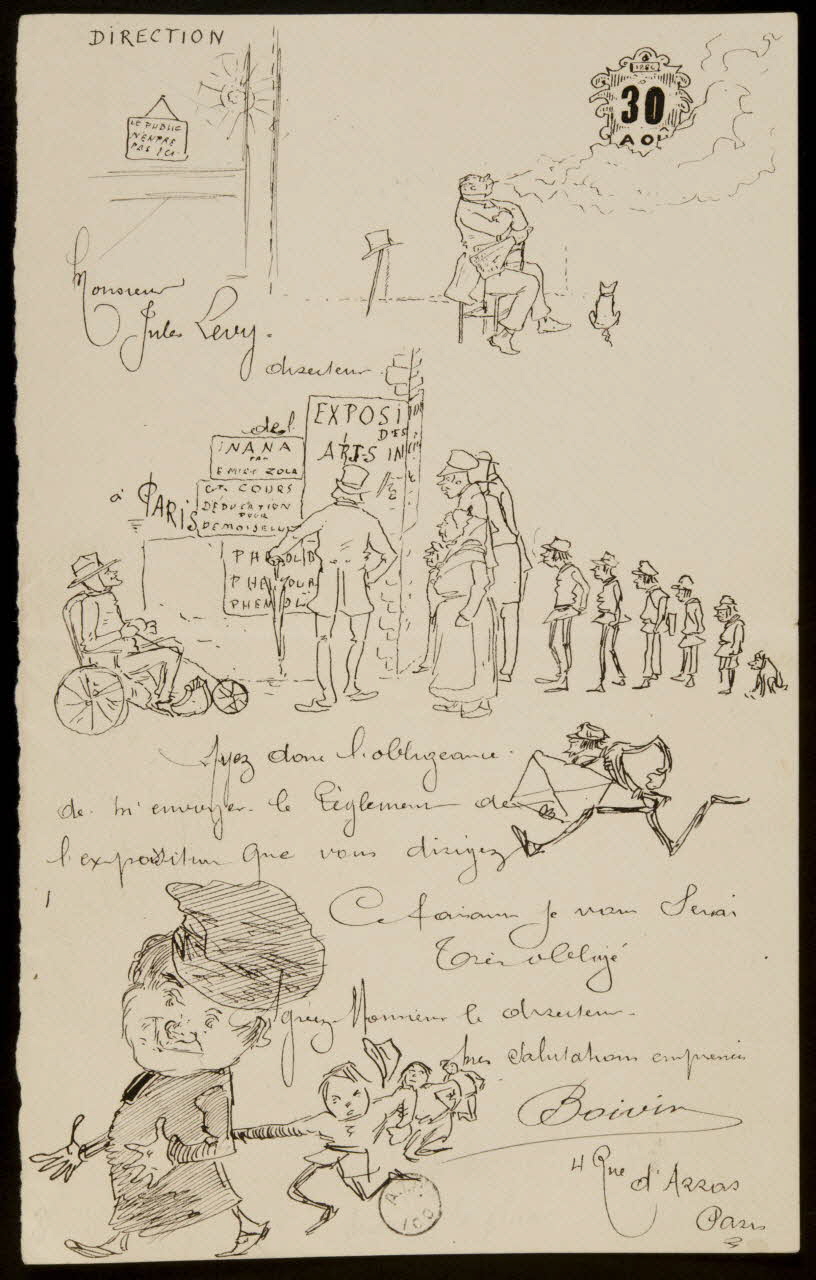 DIRECTION
LE PUBLIC
N'ENTRE
PAS ICI
30
AOU
Monsieur
Jules Levy.
directeur
de l'
EXPOSI
DES
ARTS IN
NANA
PAR
EMILE ZOLA
à PARIS
COURS
D'EDUCATION
POUR
DEMOISELLE
PHENOL
PHENOL
Ayez donc l'obligeance
de m'envoyer le Règlement de
l'exposition que vous dirigez
Ce faisant je vous serai
Très obligé
Agréez Monsieur le directeur
mes salutations empressées
Boivin
4 Rue
d'Assas
Paris